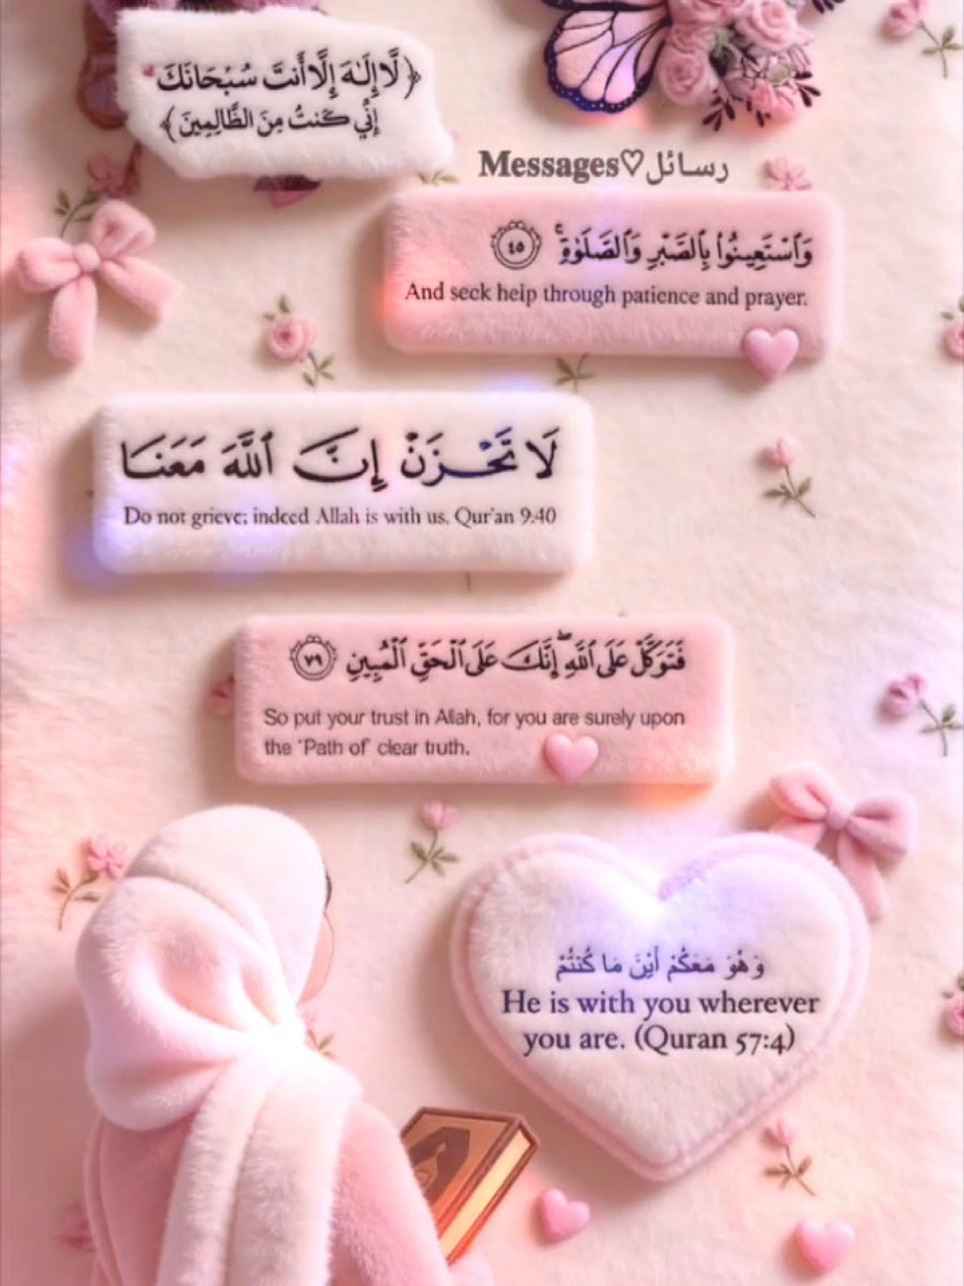 ﴿ لَّا إِلَٰهَ إِلَّا أَنتَ سُبْحَانَكَ
إِنِّي كُنتُ مِنَ الظَّالِمِينَ ﴾
Messages♡رسائل
وَٱسْتَعِينُوا۟ بِٱلصَّبْرِ وَٱلصَّلَوٰةِ ۚ ٤٥
And seek help through patience and prayer.
لَا تَحْزَنْ إِنَّ ٱللَّهَ مَعَنَا
Do not grieve; indeed Allah is with us. Qur'an 9:40
فَتَوَكَّلْ عَلَى ٱللَّهِ ۖ إِنَّكَ عَلَى ٱلْحَقِّ ٱلْمُبِينِ ٧٩
So put your trust in Allah, for you are surely upon
the ˹Path of˺ clear truth.
وَهُوَ مَعَكُمْ أَيْنَ مَا كُنتُمْ
He is with you wherever
you are. (Quran 57:4)